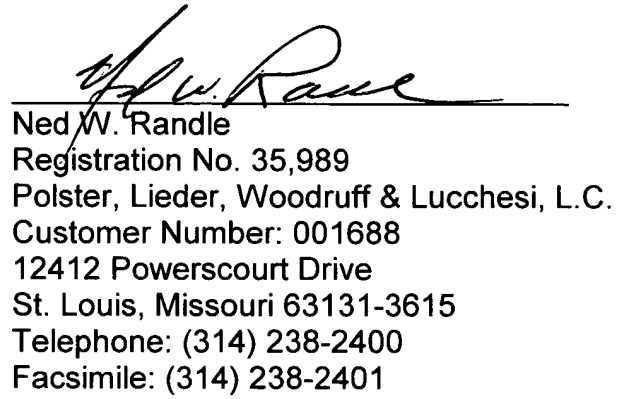 Ned W. Randle
Ned W. Randle
Registration No. 35,989
Polster, Lieder, Woodruff & Lucchesi, L.C.
Customer Number: 001688
12412 Powerscourt Drive
St. Louis, Missouri 63131-3615
Telephone: (314) 238-2400
Facsimile: (314) 238-2401